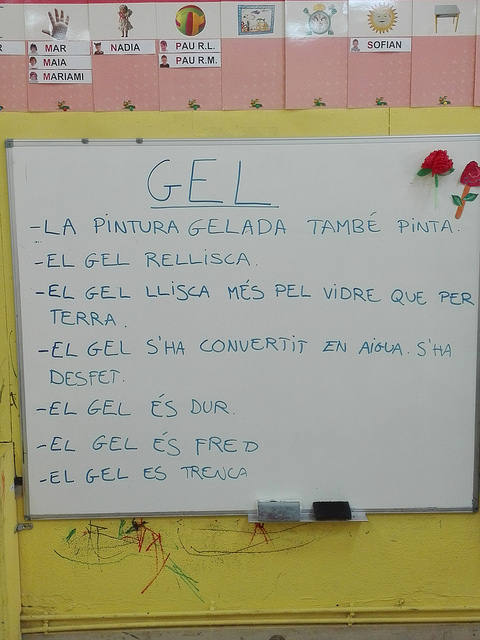 MAR NADIA PAU R.L. SOFIAN
MAIA PAU R.M.
MARIAMI
GEL
-LA PINTURA GELADA TAMBÉ PINTA.
-EL GEL RELLISCA.
-EL GEL LLISCA MÉS PEL VIDRE QUE PER
TERRA.
-EL GEL S'HA CONVERTIT EN AIGUA. S'HA
DESFET.
-EL GEL ÉS DUR.
-EL GEL ÉS FRED
-EL GEL ES TRENCA